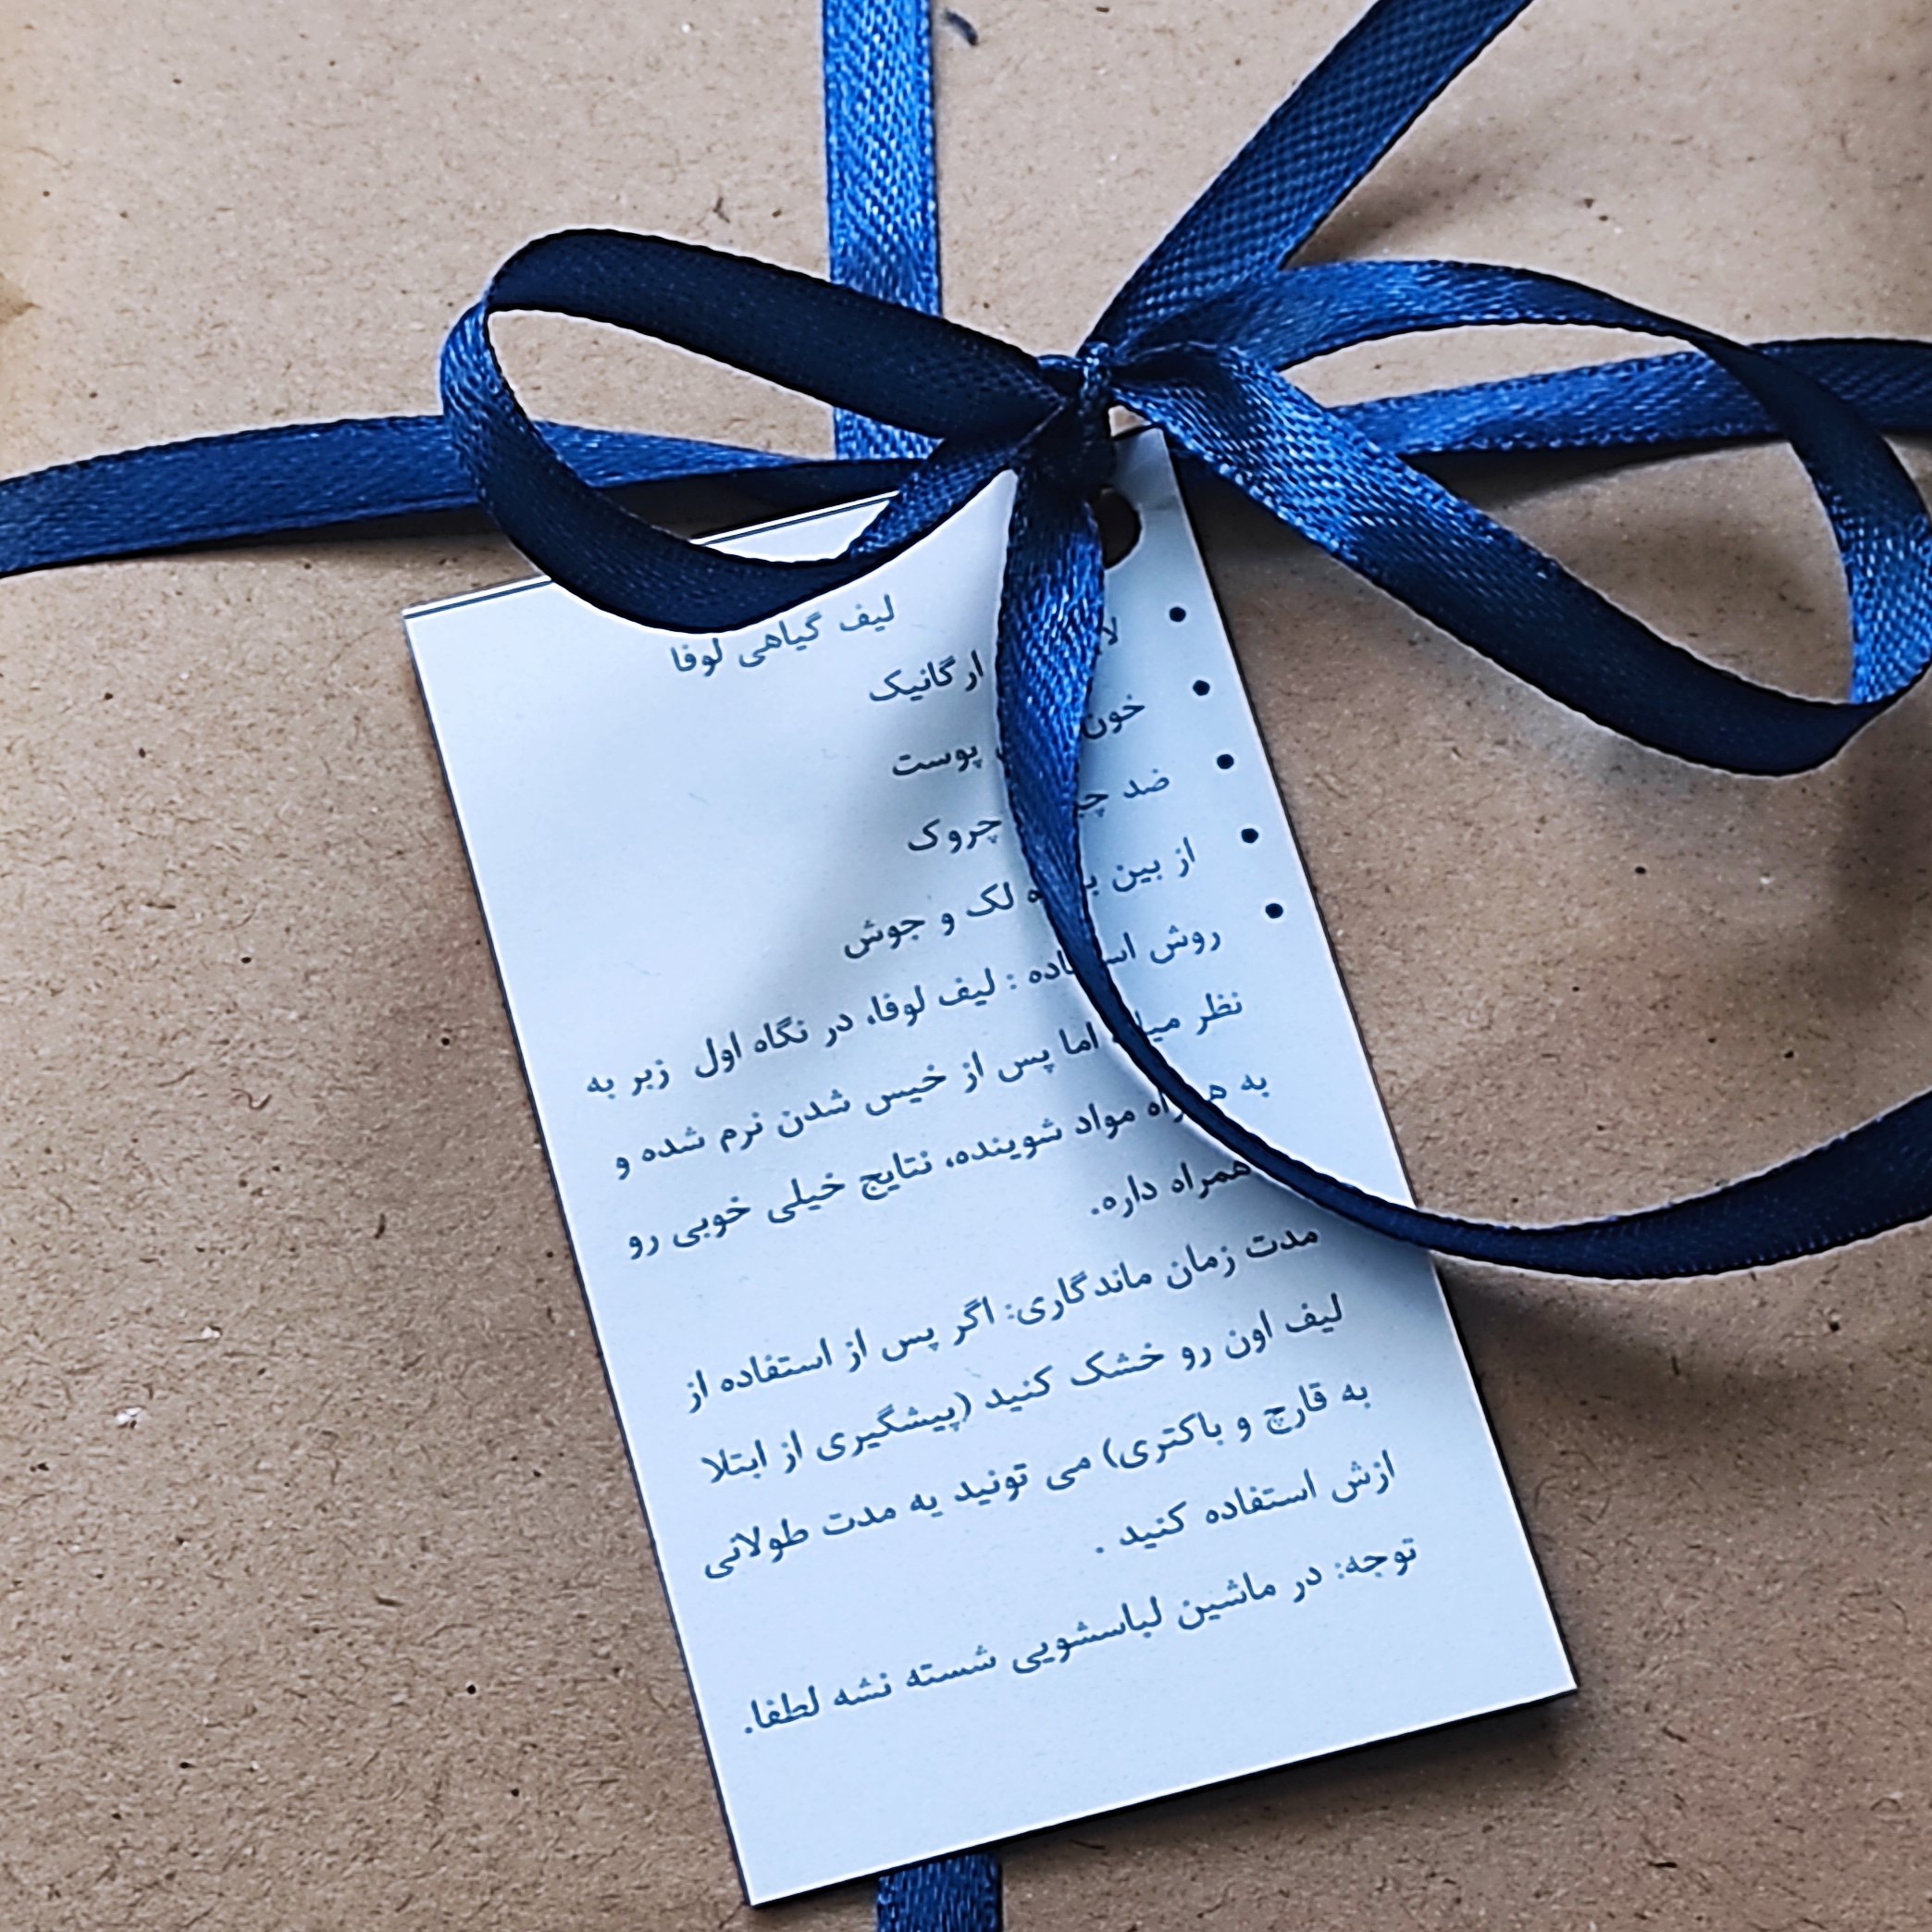 لیف گیاهی لوفا
ارگانیک
پوست
ضد چروک
از بین لک و جوش
روش استفاده : لیف لوفا، در نگاه اول زبر به
نظر میاد اما پس از خیس شدن نرم شده و
به همراه مواد شوینده، نتایج خیلی خوبی رو
همراه داره.
مدت زمان ماندگاری: اگر پس از استفاده از
لیف اون رو خشک کنید (پیشگیری از ابتلا
به قارچ و باکتری) می تونید یه مدت طولانی
ازش استفاده کنید .
توجه: در ماشین لباسشویی شسته نشه لطفا.